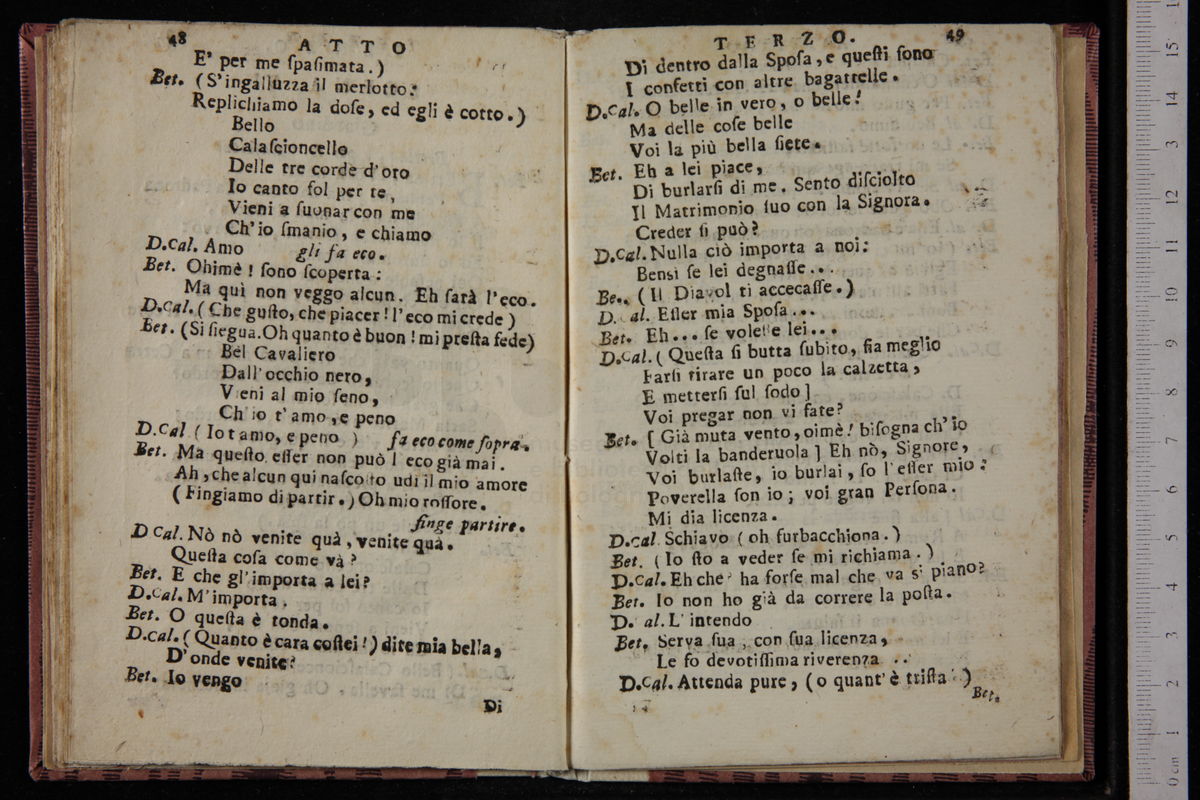 48
ATTO
E' per me ſpaſimata.)
Bet. (S'ingalluzza il merlotto:
Replichiamo la doſe, ed egli è cotto.)
Bello
Calaſcioncello
Delle tre corde d'oro
Io canto ſol per te,
Vieni a ſuonar con me
Ch'io ſmanio, e chiamo
D.Cal. Amo gli fa eco.
Bet. Ohimè! ſono ſcoperta:
Ma quì non veggo alcun. Eh ſarà l'eco.
D.Cal. (Che guſto, che piacer! l'eco mi crede)
Bet. (Si ſiegua. Oh quanto è buon! mi preſta fede)
Bel Cavaliero
Dall'occhio nero,
Vieni al mio ſeno,
Ch'io t'amo, e peno
D.Cal (Io t amo, e peno ) fa eco come ſopra.
Bet. Ma queſto eſſer non può l eco già mai.
Ah, che alcun qui naſcoſto udì il mio amore
(Fingiamo di partir.) Oh mio roſſore.
finge partire.
D Cal. Nò nò venite quà, venite quà.
Queſta coſa come và?
Bet. E che gl'importa a lei?
D.Cal. M'importa.
Bet. O queſta è tonda.
D.Cal. (Quanto è cara coſtei!) dite mia bella,
D'onde venite?
Bet. Io vengo
Di
TERZO.
49
Di dentro dalla Spoſa, e queſti ſono
I confetti con altre bagattelle.
D.Cal. O belle in vero, o belle!
Ma delle coſe belle
Voi la più bella ſiete.
Bet. Eh a lei piace,
Di burlarſi di me. Sento diſciolto
Il Matrimonio ſuo con la Signora.
Creder ſi può?
D.Cal. Nulla ciò importa a noi:
Bensì ſe lei degnaſſe...
Be.. (Il Diavol ti accecaſſe.)
D. al. Eſſer mia Spoſa...
Bet. Eh... ſe voleſſe lei...
D.Cal. (Queſta ſi butta ſubito, ſia meglio
Farſi tirare un poco la calzetta,
E metterſi ſul ſodo]
Voi pregar non vi fate?
Bet. [Già muta vento, oimè! biſogna ch'io
Volti la banderuola] Eh nò, Signore,
Voi burlaſte, io burlai, ſo l'eſſer mio:
Poverella ſon io; voi gran Perſona.
Mi dia licenza.
D.Cal Schiavo (oh furbacchiona.)
Bet. (Io ſto a veder ſe mi richiama.)
D.Cal. Eh che? ha forſe mal che va sì piano?
Bet. Io non ho già da correre la poſta.
D. al. L'intendo
Bet. Serva ſua, con ſua licenza,
Le fo devotiſſima riverenza ..
D.Cal. Attenda pure, (o quant'è triſta!)
Bet.